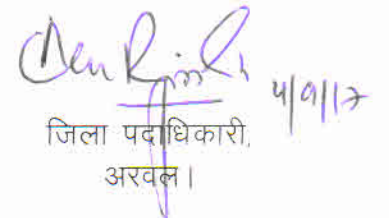 4/9/17
जिला पदाधिकारी,
अरवल।